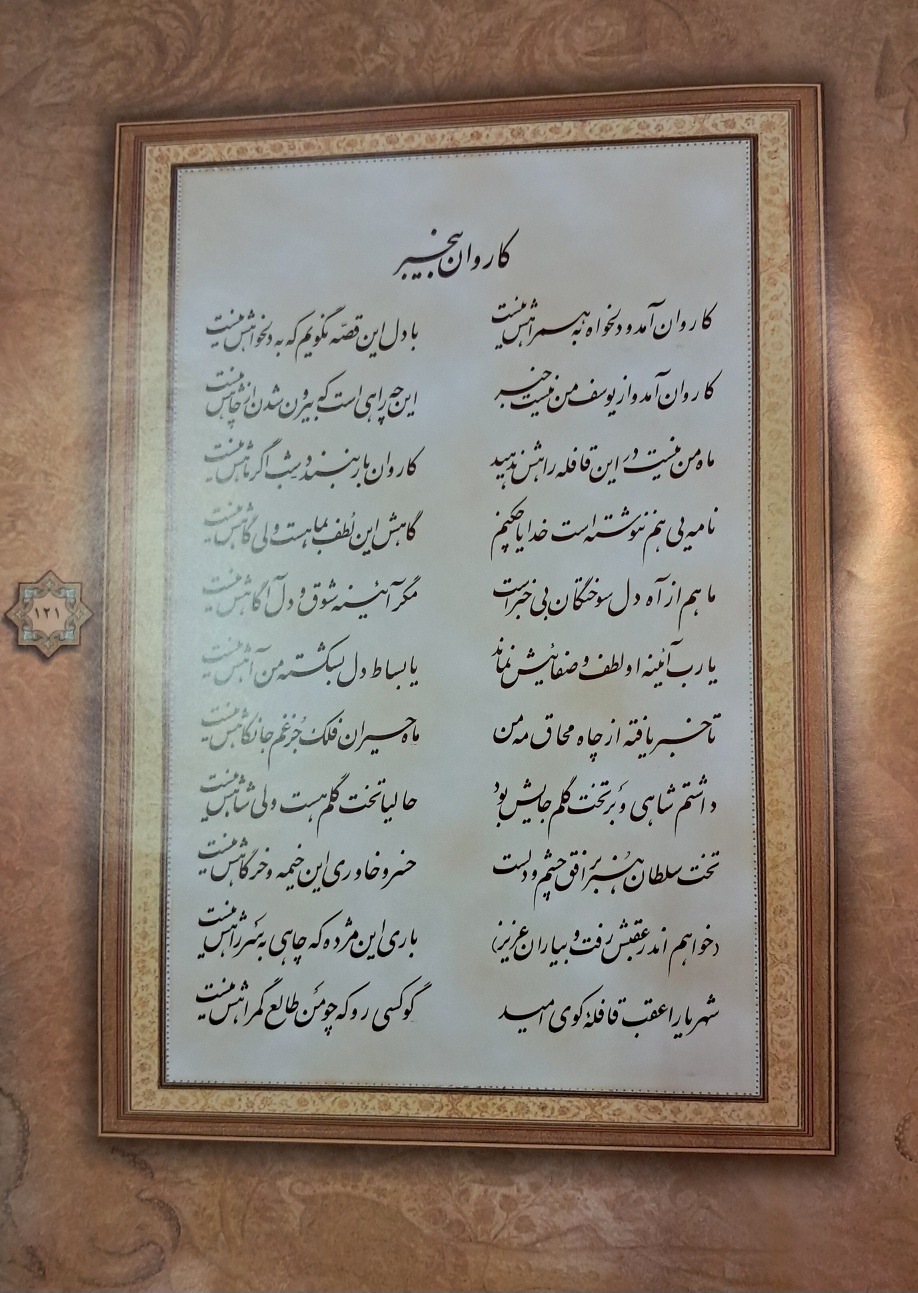 کاروان بیخبر
کاروان آمد و دلخواه به همراهش نیست با دل این قصّه نگویم که به دلخواهش نیست
کاروان آمد و از یوسف من نیست خبر این چه راهی است که بیرون شدن از چاهش نیست
ماه من نیست در این قافله راهش ندهید کاروان بار نبندد شب اگر ماهش نیست
نامه یی هم ننوشته است خدایا چکنم گاهش این لُطف بما هست ولی گاهش نیست
ماهم از آه دل سوختگان بی خبر است مگر آئینه شوق و دل آگاهش نیست
یا رب آئینه او لطف و صفائیش نماند یا بساط دل بشکسته من آهش نیست
تا خبر یافته از چاه محاق مه من ماه حیران فلک جُز غم جانکاهش نیست
داشتم شاهی و بر تخت گلم جایش بود حالیا تخت گلم هست ولی شاهش نیست
تخت سلطان هُنر بر افق چشم و دلست خسرو خاوری این خیمه و خرگاهش نیست
خواهم اندر عقبش رفت و بیاران عزیز باری این مژده که چاهی بسَر راهش نیست
شهریارا عقب قافلهٔ کوی امید گو کسی رو که چو من طالع گمراهش نیست
۱۲۱